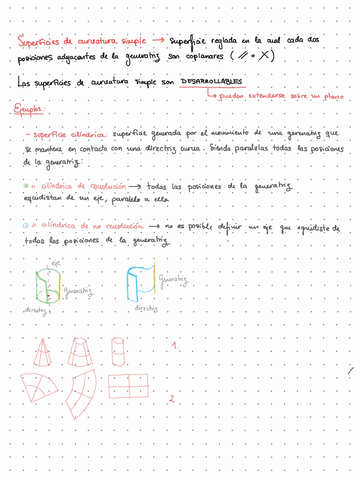 Superficies de curvatura simple → Superficie reglada en la cual cada dos
posiciones adyacentes de la generatriz son coplanares ( // o X )
Las superficies de curvatura simple son DESARROLLABLES
↳ pueden extenderse sobre un plano
Ejemplos:
- superficie cilíndrica: superficie generada por el movimiento de una generatriz que
se mantiene en contacto con una directriz curva. Siendo paralelas todas las posiciones
de la generatriz.
" cilíndrica de revolución → todas las posiciones de la generatriz
equidistan de un eje, paralelo a ella
" cilíndrica de no revolución → no es posible definir un eje que equidiste de
todas las posiciones de la generatriz
eje
generatriz
directriz
Generatriz
directriz
1.
2.